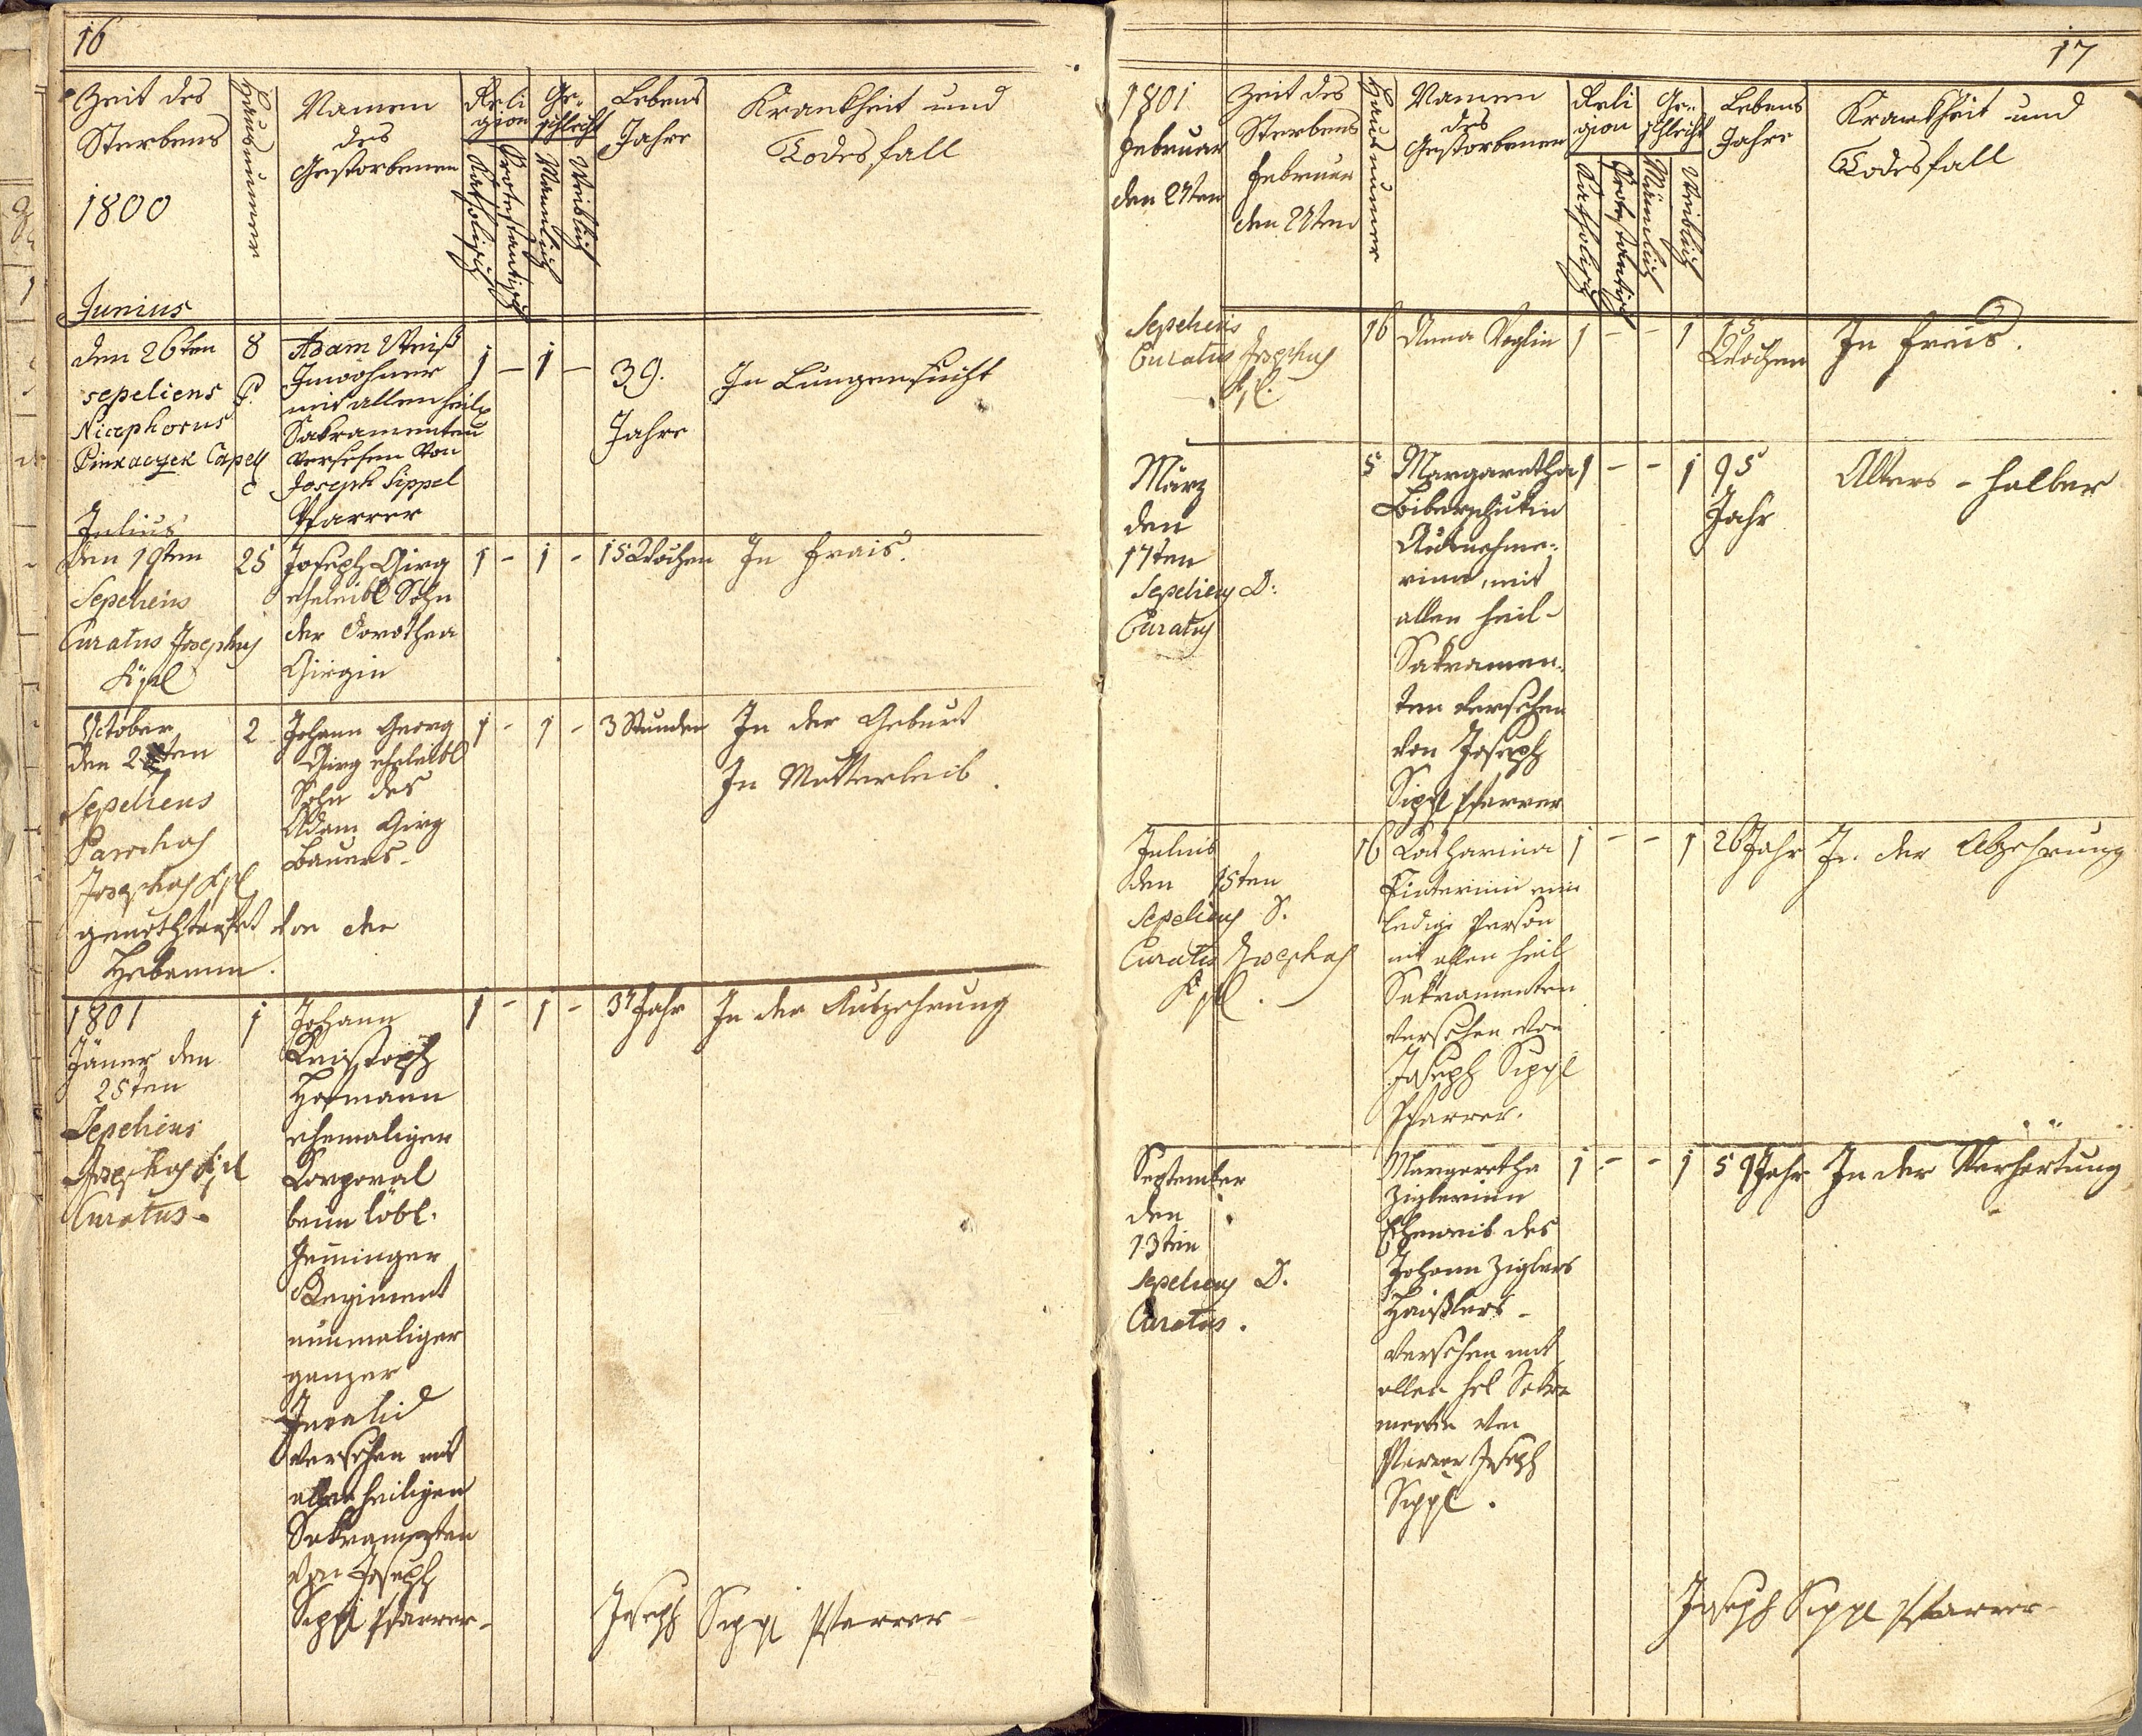 16
Zeit des
Sterbens
1800
Junius
Hausnumer
Namen
des
Gestorbenen
Reli
gion
Katholisch
Protestantisch
Ge-
schlecht
Mannlich
Weiblich
Lebens
Jahre
Krankheit und
Todesfall
den 26ten
sepeliens P.
Nicephorus
Capell
8
Adam Weiß
Inwohner
mit allen heil
Sakramenten
versehen von
Joseph Sippel
Pfarrer
1 – 1 –
39.
Jahre
In Lungensucht
Julius
den 19ten
Sepeliens
Curatus Josephus
Sipl
25
Joseph Girg
eheleibl Sohn
der Dorothea
Girgin
1 – 1 –
15 Wochen
In Frais.
October
den 2 ten
Sepeliens
Parochus
Josephus Sipl
genothtauft von der
Hebamm.
2
Johann Georg
Girg eheleibl
Sohn des
Adam Girg
Bauers-
1 – 1 –
3 Stunden
In der Geburt
In Mutterleib.
1801
Jäner den
25ten
Sepeliens
Josephus Sipl
Curatus-
1
Johann
Kristoph
Hofmann
ehemaliger
Korporal
beim löbl.
Regiment
nunmaliger
ganzer
Invalid
versehen mit
allen heiligen
Sakramenten
von Joseph
Sippl Pfarrer-
1 – 1 –
37 Jahr
In der Auszehrung
Joseph Sippl Pfarrer
17
1801
Februar
den 27ten
Zeit des
Sterbens
Februar
den 27ten
Hausnummer
Namen
des
Gestorbenen
Reli
gion
Katholisch
Protestantisch
Ge-
schlecht
Männlich
Weiblich
Lebens
Jahre
Krankheit und
Todesfall
Sepeliens
Curatus Josephus
Sipl.
16
Anna Voglin
1 – – 1
15
Wochen
In Frais.
März
den
17ten
Sepeliens D:
Curatus
5
Margaretha
Biberschukin
Ausnehme-
rinn, mit
allen heil-
Sakramen-
ten versehen
von Joseph
Sippl Pfarrer
1 – – 1
95
Jahr
Alters-halber
Julius
den 15ten
Sepeliens D.
Curatus Josephus
Sipl.
16
Katharina
ein
ledige Person
mit allen heil
Sakramenten
versehen von
Joseph Sippl
Pfarrer.
1 – – 1
26 Jahr
In der Abzehrung
September
den
13ten
Sepeliens D.
Curatus.
Margaretha
Ziglerinn
Eheweib des
Johann Ziglers
Häußlers-
versehen mit
allen hel Sakra
menten von
Pfarrer Joseph
Sippl.
1 – – 1
59 Jahr
In der Verhartung
Joseph Sippl Pfarrer-